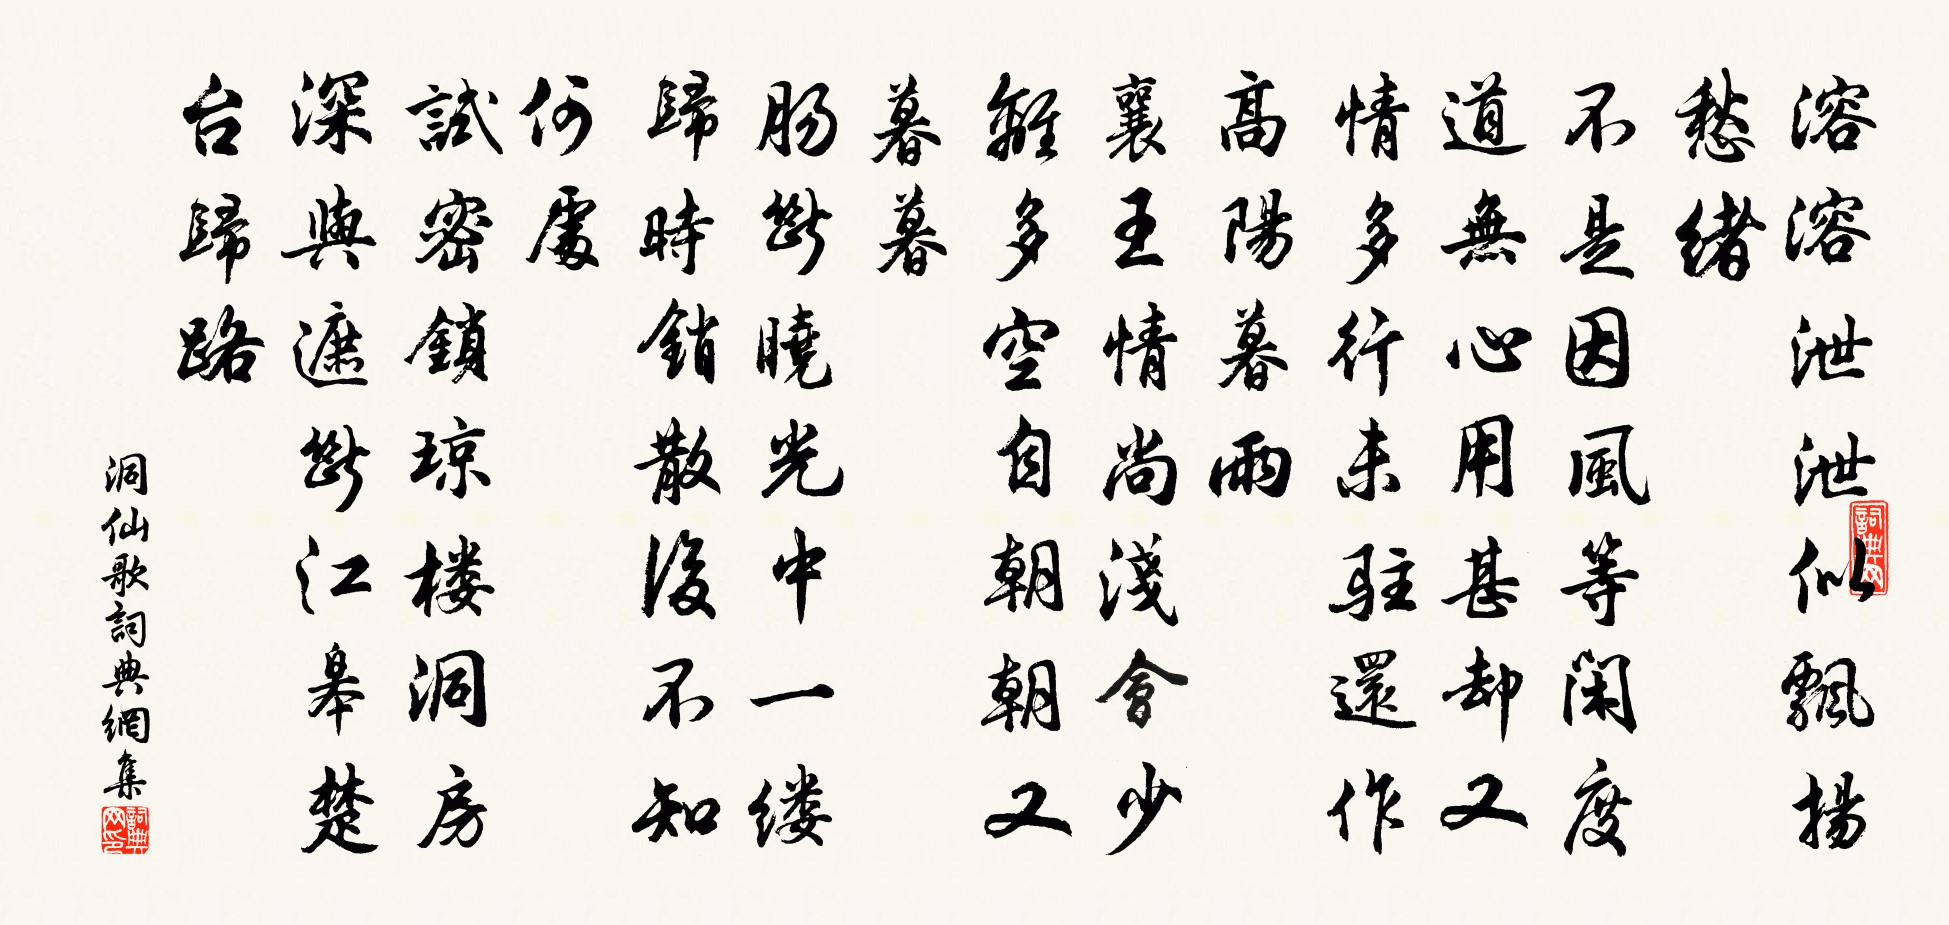 溶溶泄泄似飄揚
愁緒
不是因風等閑度
道無心用甚却又
情多行未駐還作
高陽暮雨
襄王情尚淺會少
離多空自朝朝又
暮暮
肠斷曉光中一缕
歸時銷散後不知
何處
試密鎖琼楼洞房
深與遮斷江皋楚
台歸路
洞仙歌詞典網集
詞典网
詞典网印